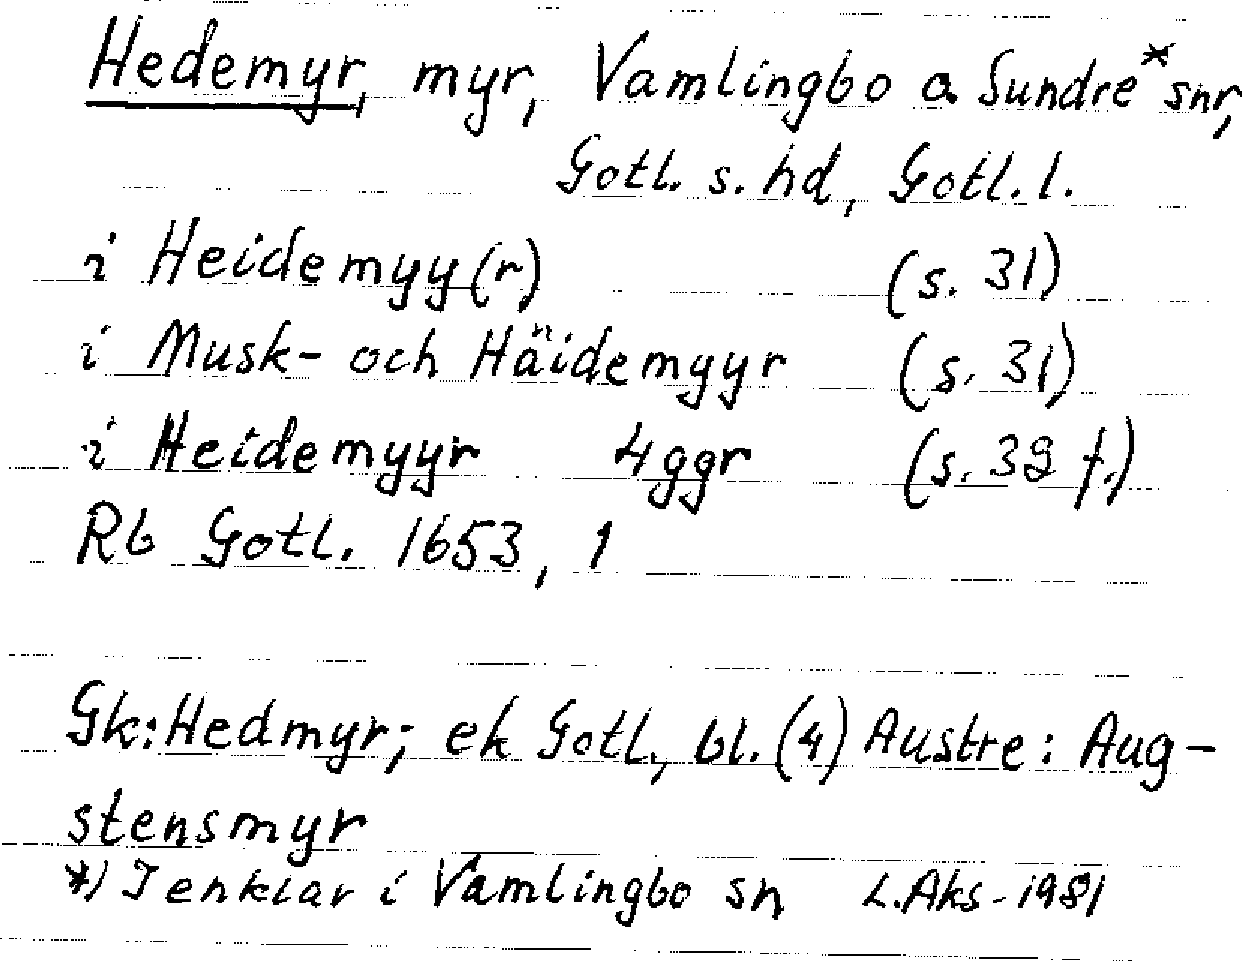 Hedemyr, myr, Vamlingbo o. Sundre* snr,
Gotl. s. hd, Gotl. l.
i Heidemyy(r) (s. 31)
i Musk- och Häidemyyr (s. 31)
i Heidemyyr 4ggr (s. 32 f.)
Rb Gotl. 1653, 1
Gk: Hedmyr; ek Gotl, bl. (4) Austre: Aug-
stensmyr
*) I enklav i Vamlingbo sn L.Aks- 1981